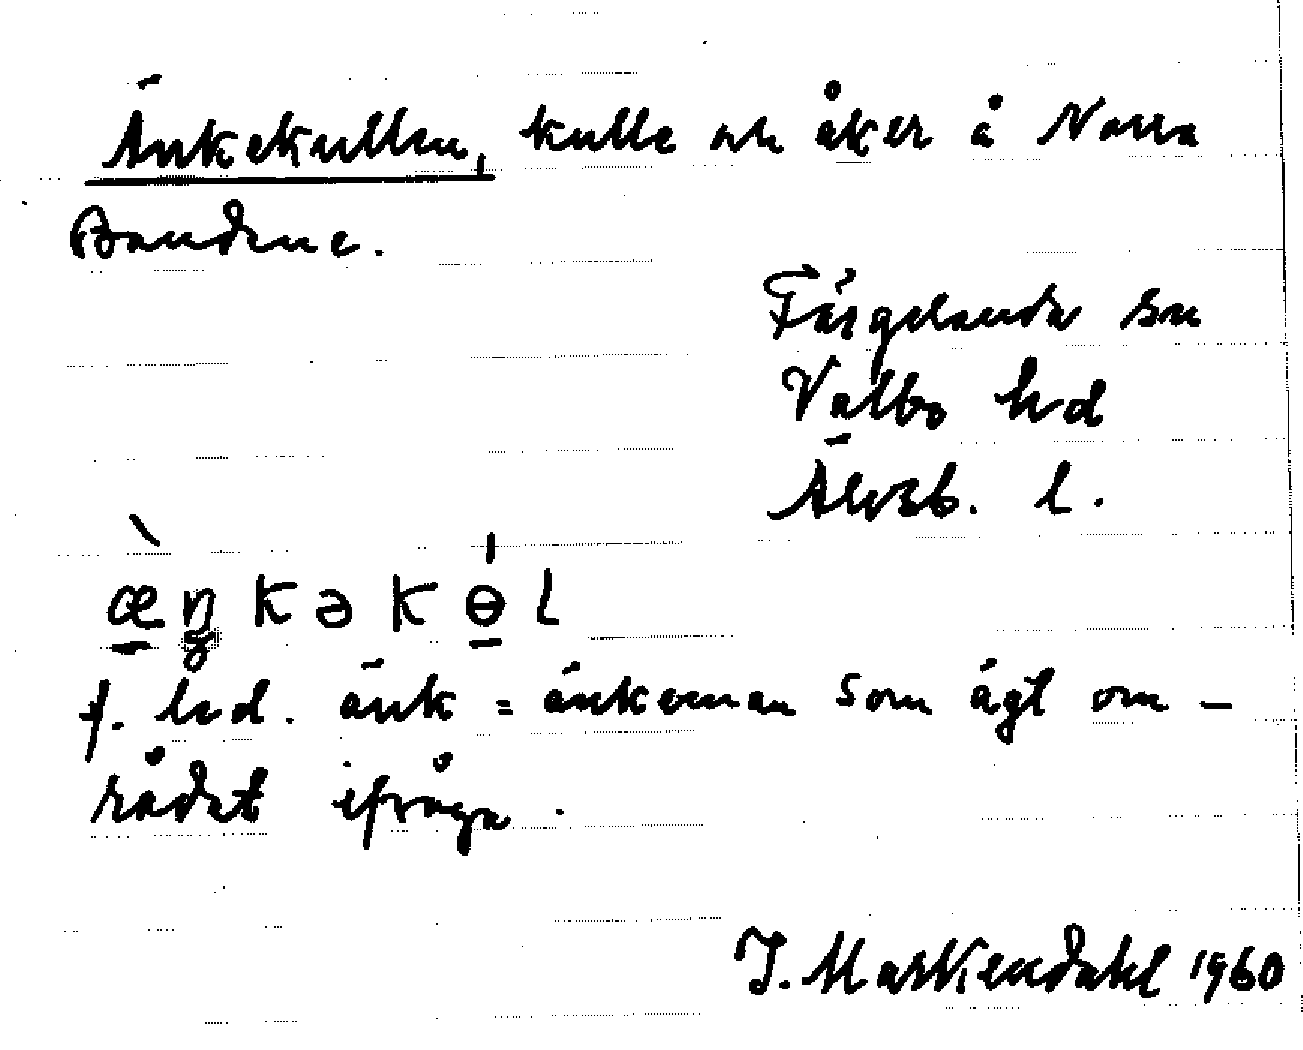 Änkekullen, kulle och åker å Norra
Bandene.
Färgelanda sn
Valbo hd
Älvsb. l.
æ̀ŋkəkɵ́l
f. led. änk = änkeman som ägt om-
rådet ifråga.
J. Markendahl 1960